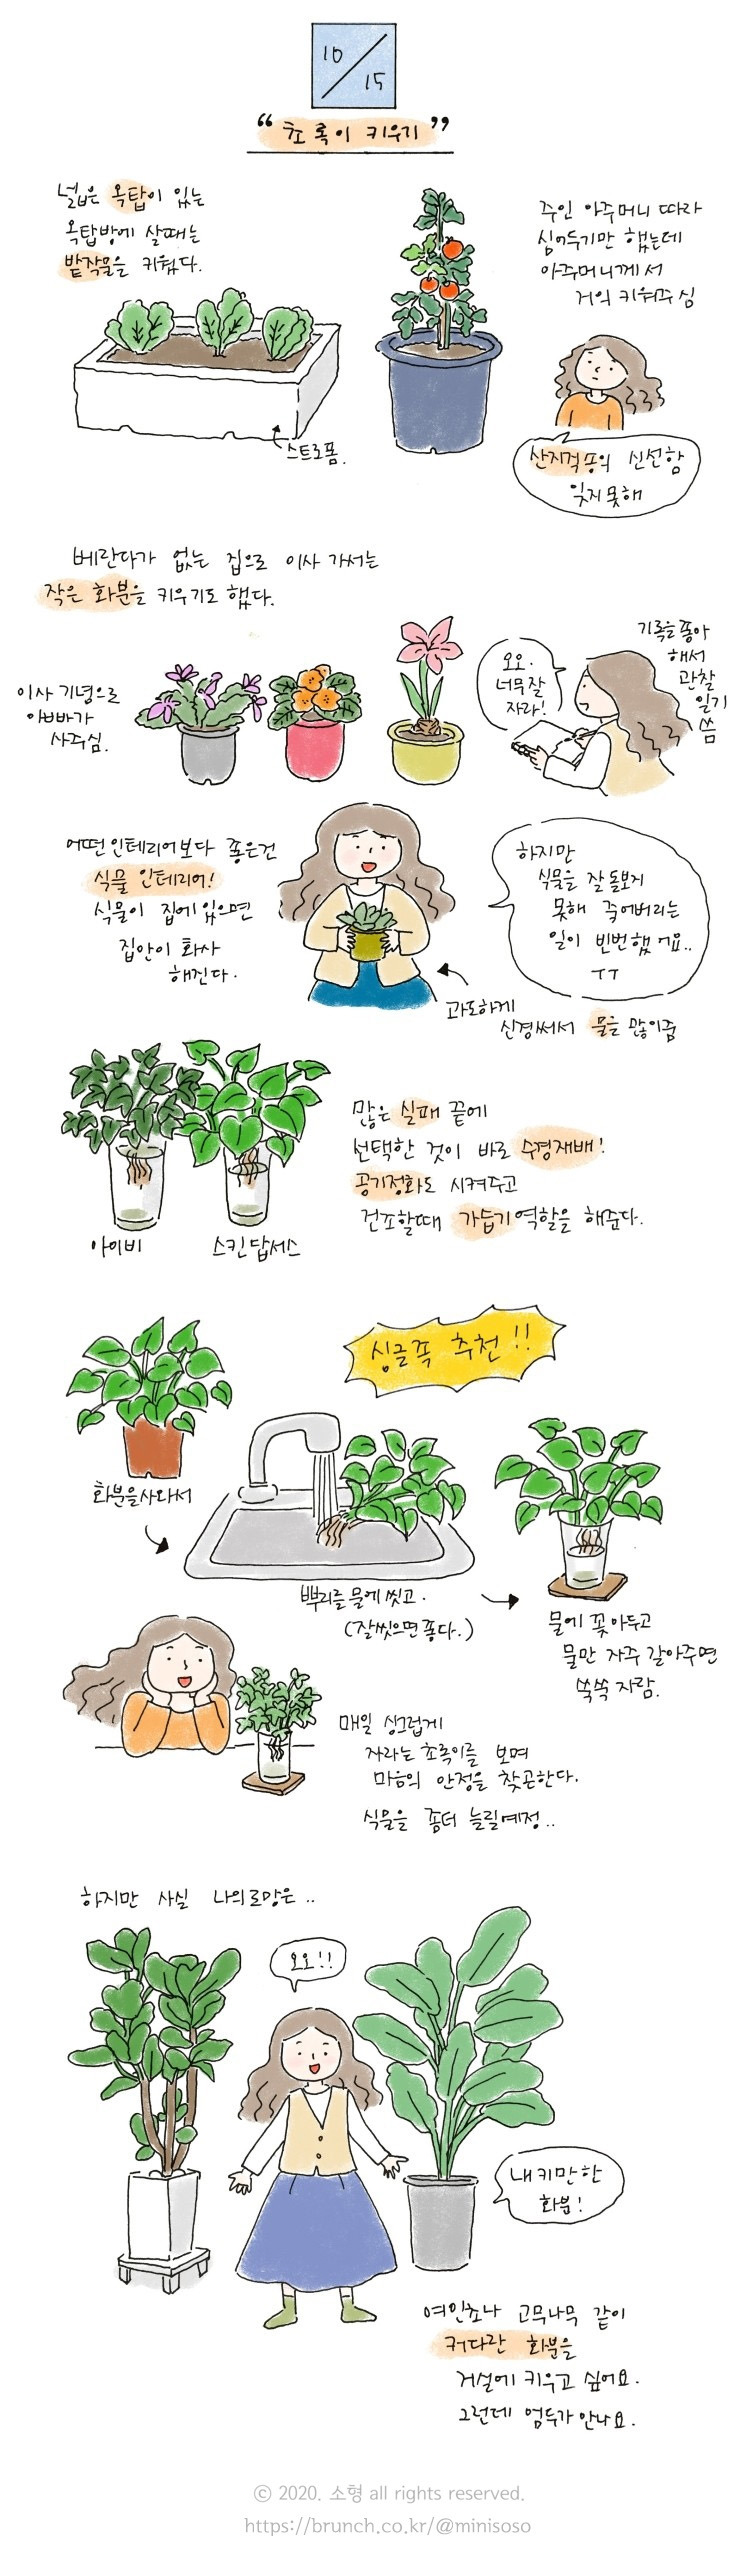 10
15
“초록이 키우기”
넓은 옥탑이 있는
옥탑방에 살때는
밭작물을 키웠다.
주인 아주머니 따라
심어두기만 했는데
아주머니께서
거의 키워주심
스트로폼.
산지직송의 신선함
잊지못해
베란다가 없는 집으로 이사 가서는
작은 화분을 키우기도 했다.
이사 기념으로
아빠가
사주심.
오오.
너무잘
자라!
기록을좋아
해서
관찰
일기
씀
어떤인테리어보다 좋은건
식물 인테리어!
식물이 집에있으면
집안이 화사
해진다.
하지만
식물을 잘돌보지
못해 죽어버리는
일이 빈번했어요..
ㅜㅜ
과도하게
신경써서 물을 많이줌
아이비
스킨답서스
많은 실패 끝에
선택한 것이 바로 수경재배!
공기정화도 시켜주고
건조할때 가습기역할을 해준다.
싱글족 추천!!
화분을사와서
뿌리를 물에씻고.
(잘씻으면좋다.)
물에 꽂아두고
물만 자주 갈아주면
쑥쑥 자람.
매일 싱그럽게
자라는 초록이를 보며
마음의 안정을 찾곤한다.
식물을 좀더 늘릴예정..
하지만 사실 나의로망은..
오오!!
내키만한
화분!
여인초나 고무나무 같이
커다란 화분을
거실에 키우고 싶어요.
그런데 엄두가안나요.
© 2020. 소형 all rights reserved.
https://brunch.co.kr/@minisoso